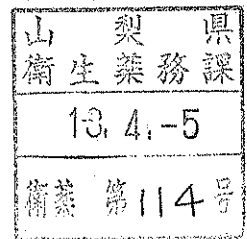 山梨県
衛生薬務課
13.4.-5
衛薬 第114号